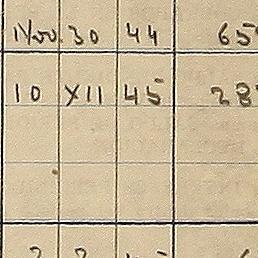 Nov. 30 44 65
10 XII 45 28